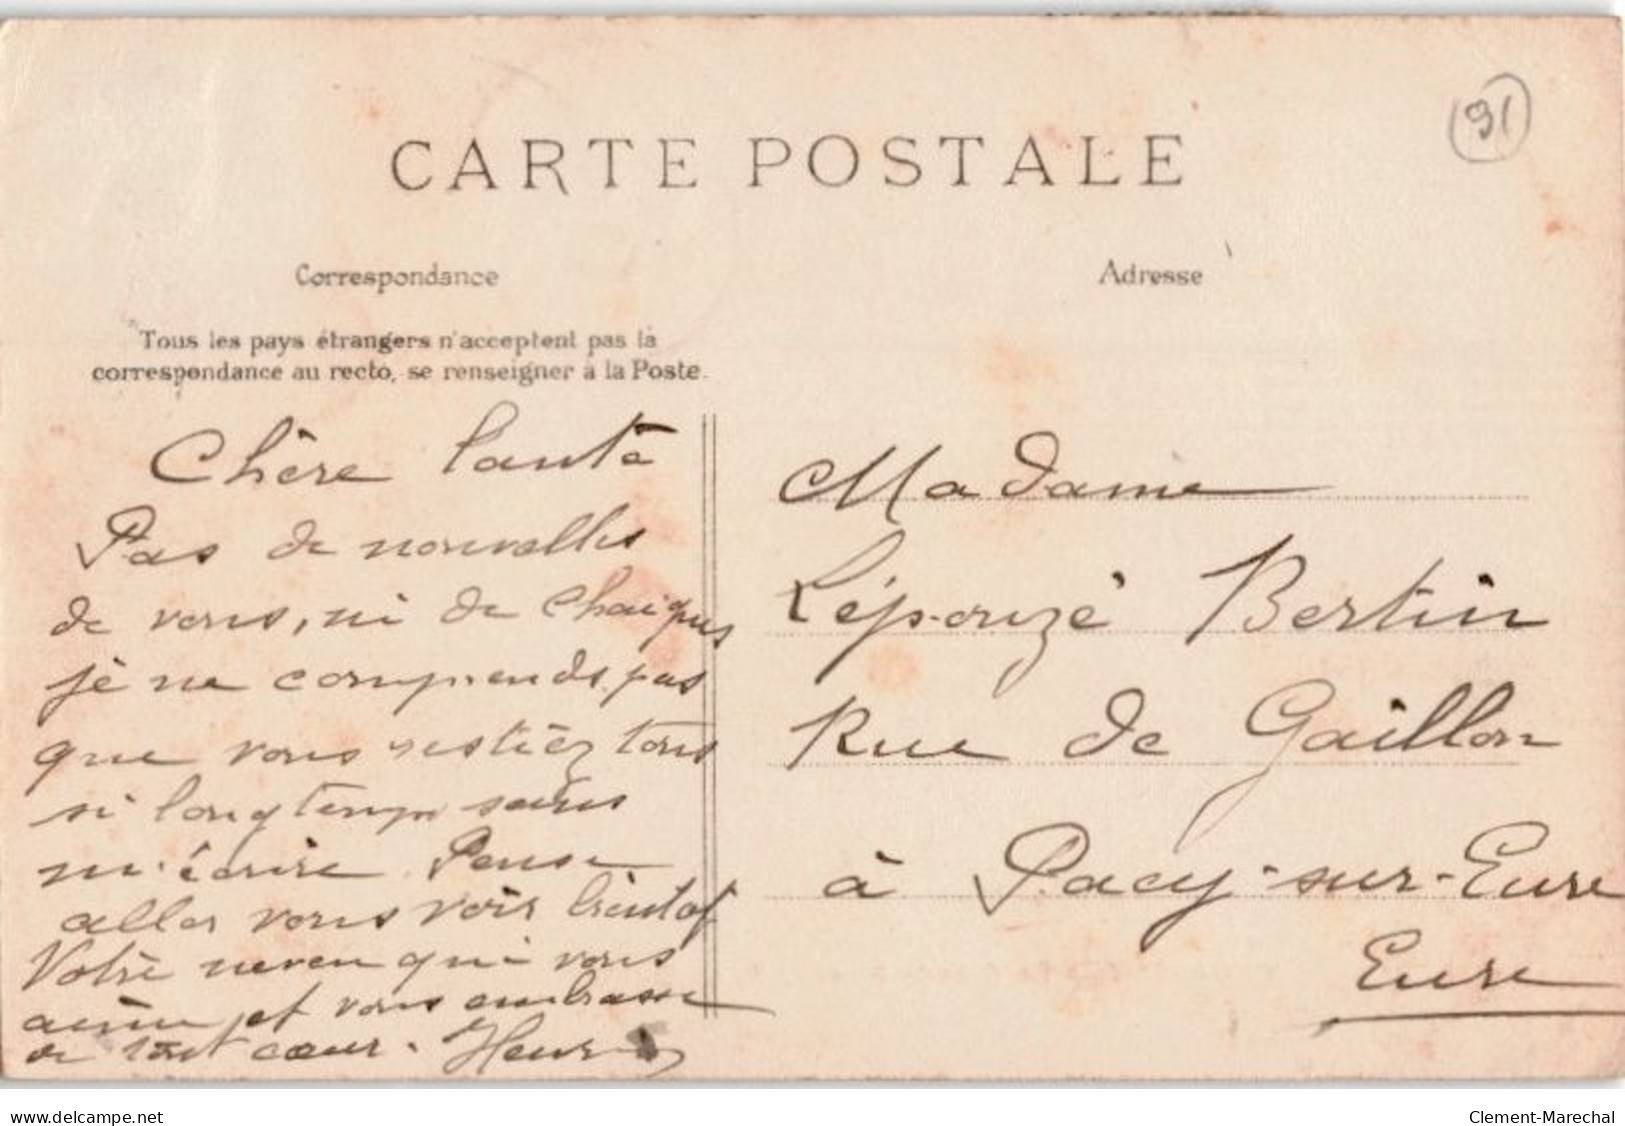 91
CARTE POSTALE
Correspondance
Adresse
Tous les pays étrangers n'acceptent pas la
correspondance au recto, se renseigner à la Poste.
Chère tante
Pas de nouvelles
de vous, ni de
je ne comprends pas
que vous restiez tous
si longtemps sans
m'écrire. Pense
aller vous voir bientot
Votre neveu qui vous
aime et vous embrasse
de tout cœur. Henri
Madame
Lépouzé Bertin
Rue de Gaillon
à Pacy-sur-Eure
Eure
www.delcampe.net
Clement-Marechal